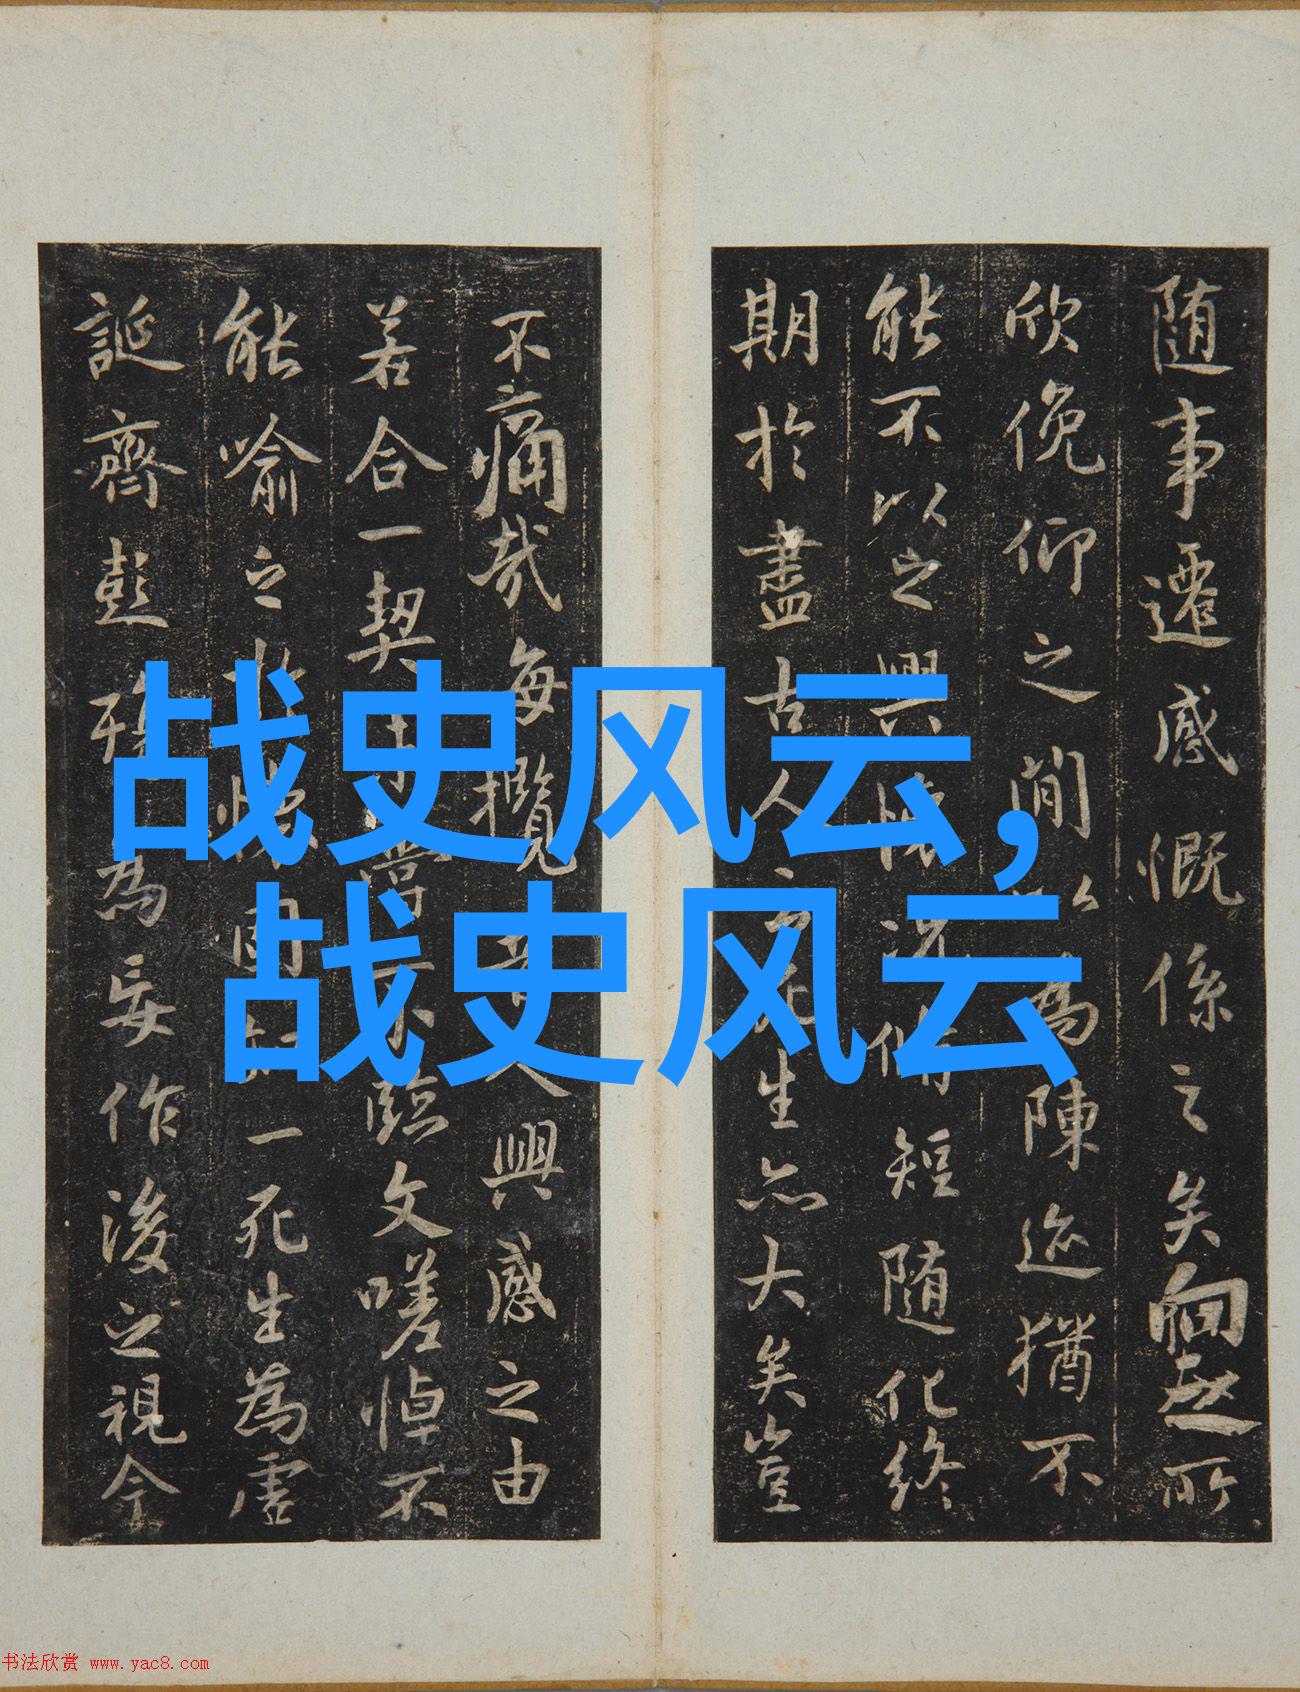 战史风云，
战史风云
随事遷感慨係之矣向之所
欣俛仰之間以為陳迹猶不
能不以之興懷況脩短随化終
期於盡古人云死生亦大矣豈
不痛哉每攬昔人興感之由
若合一契未嘗不臨文嗟悼不
能喻之於懷固知一死生為虛
誕齊彭殤為妄作後之視今
书法欣赏 www.yac8.com